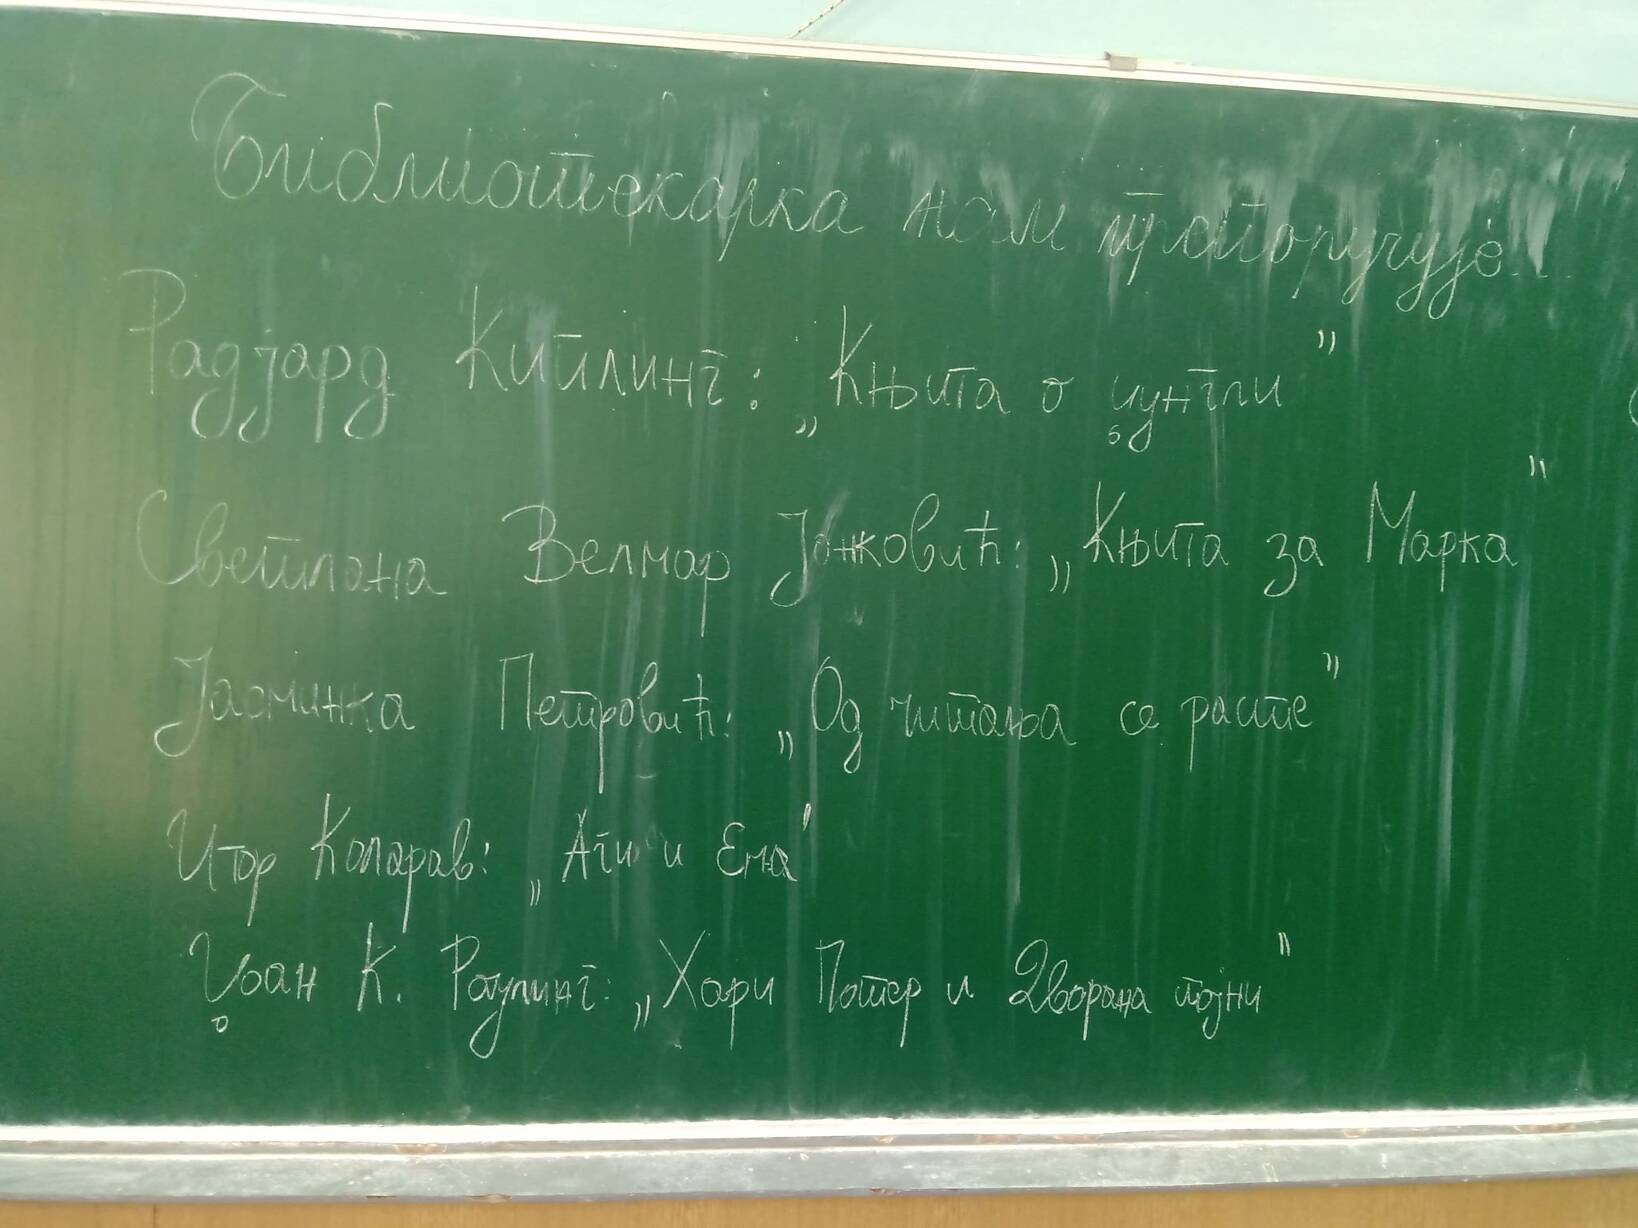 Библиотекарка нам препоручује...
Радјард Киплинг: „Књига о џунгли”
Светлана Велмар Јанковић: „Књига за Марка”
Јасминка Петровић: „Од читања се расте”
Игор Коларов: „Аги и Ема”
Џоан К. Роулинг: „Хари Потер и Дворана тајни”